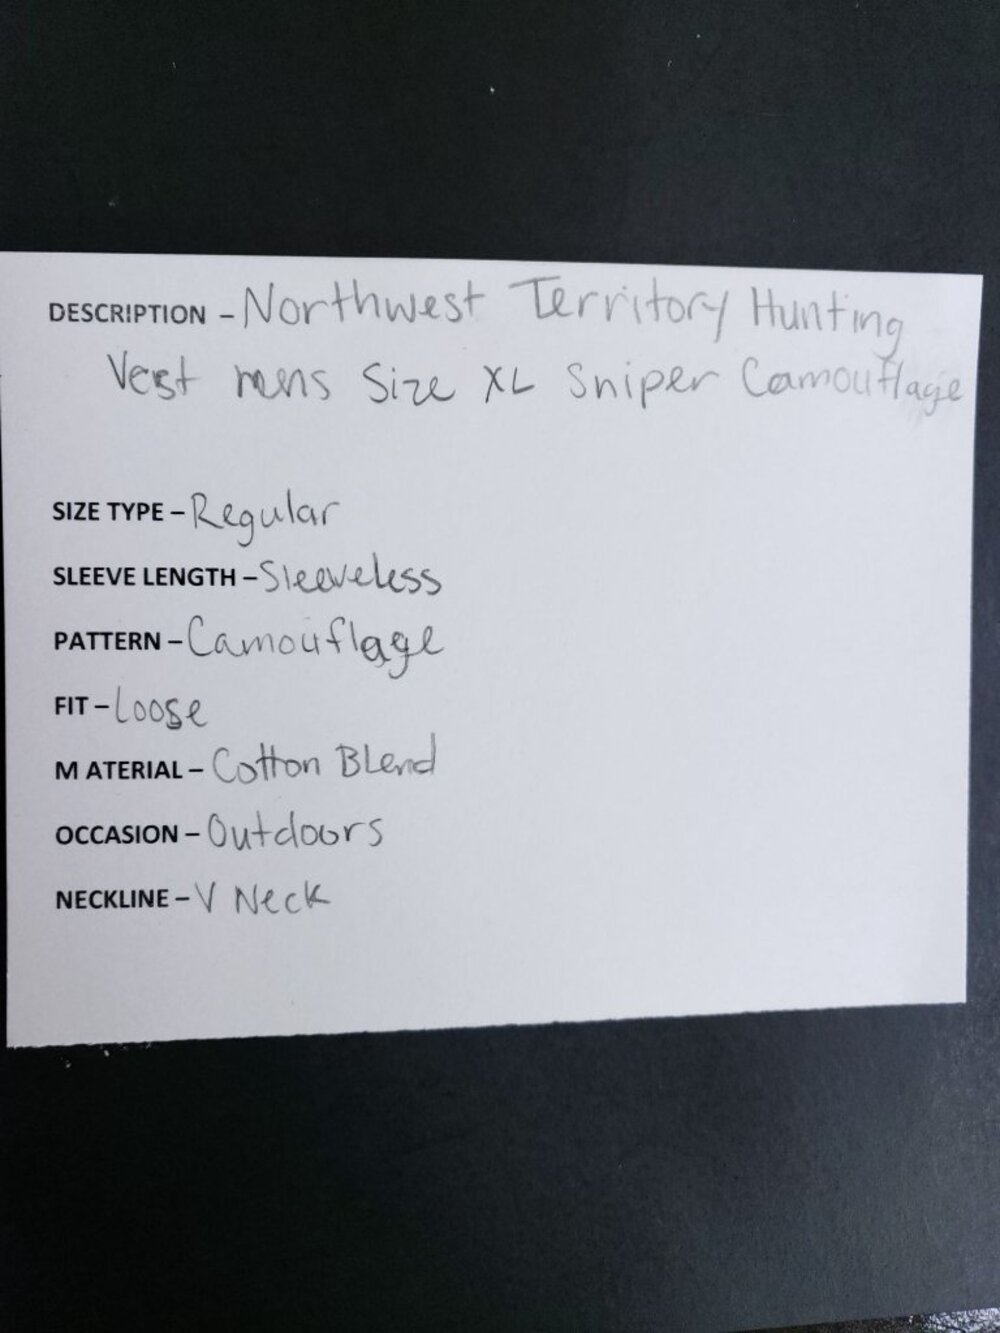 DESCRIPTION – Northwest Territory Hunting
Vest mens Size XL Sniper Camouflage
SIZE TYPE – Regular
SLEEVE LENGTH – Sleeveless
PATTERN – Camouflage
FIT – Loose
M ATERIAL – Cotton Blend
OCCASION – Outdoors
NECKLINE – V Neck